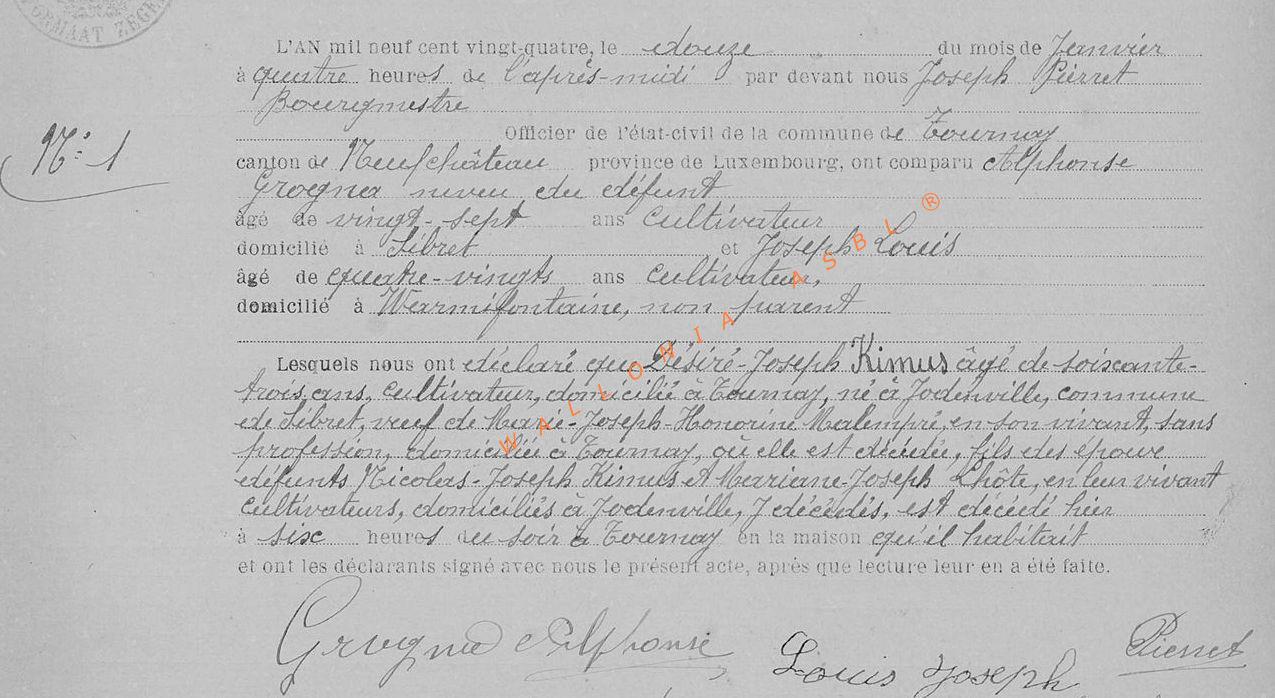 FORMAAT ZEGEL
L'AN mil neuf cent vingt-quatre, le douze du mois de Janvier
à quatre heures de l'après-midi par devant nous Joseph Pierret
Bourgmestre
Officier de l'état-civil de la commune de Tournay
N° 1
canton de Neufchâteau province de Luxembourg, ont comparu Alphonse
Grogna neveu du défunt
âgé de vingt-sept ans cultivateur
domicilié à Sibret et Joseph Louis
âgé de quatre-vingts ans cultivateur,
domicilié à Warmifontaine, non parent
Lesquels nous ont déclaré que Désiré-Joseph Kimus âgé de soixante-
trois ans, cultivateur, domicilié à Tournay, né à Jodenville, commune
de Sibret, veuf de Marie-Joseph-Honorine Malempré, en son vivant, sans
profession, domiciliée à Tournay, où elle est décédée, fils des époux
défunts Nicolas-Joseph Kimus et Mariane-Joseph Lhôte, en leur vivant
cultivateurs, domiciliés à Jodenville, y décédés, est décédé hier
à six heures du soir à Tournay en la maison qu'il habitait
et ont les déclarants signé avec nous le présent acte, après que lecture leur en a été faite.
Grogna Alphonse Louis Joseph Pierret
WALLONIA ASBL ®